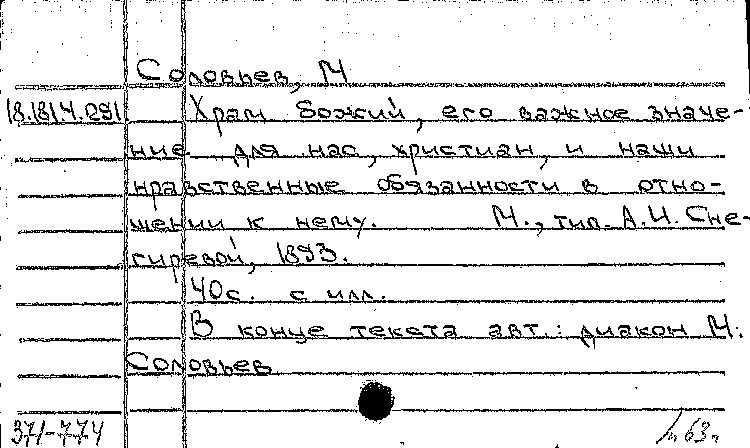 Соловьев, М
18.181.4.291 Храм божий, его важное значе-
ние для нас, христиан, и наши
нравственные обязанности в отно-
шении к нему. М., тип. А.И. Сне-
гиревой, 1893.
40с. с илл.
В конце текста авт.: диакон М.
Соловьев
371-774 63